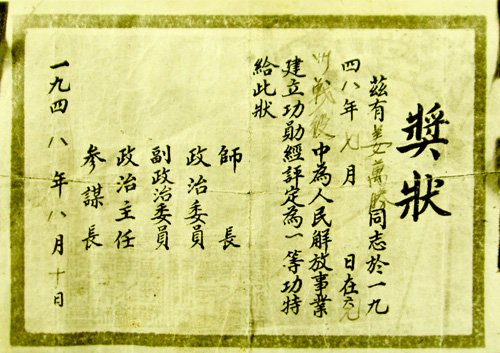 獎狀
茲有姜萬同志於一九
四八年月 日在兖
州戰役中為人民解放事業
建立功勛經評定為一等功特
給此狀
師 長
政治委員
副政治委員
政治主任
參謀長
一九四八年八月十日